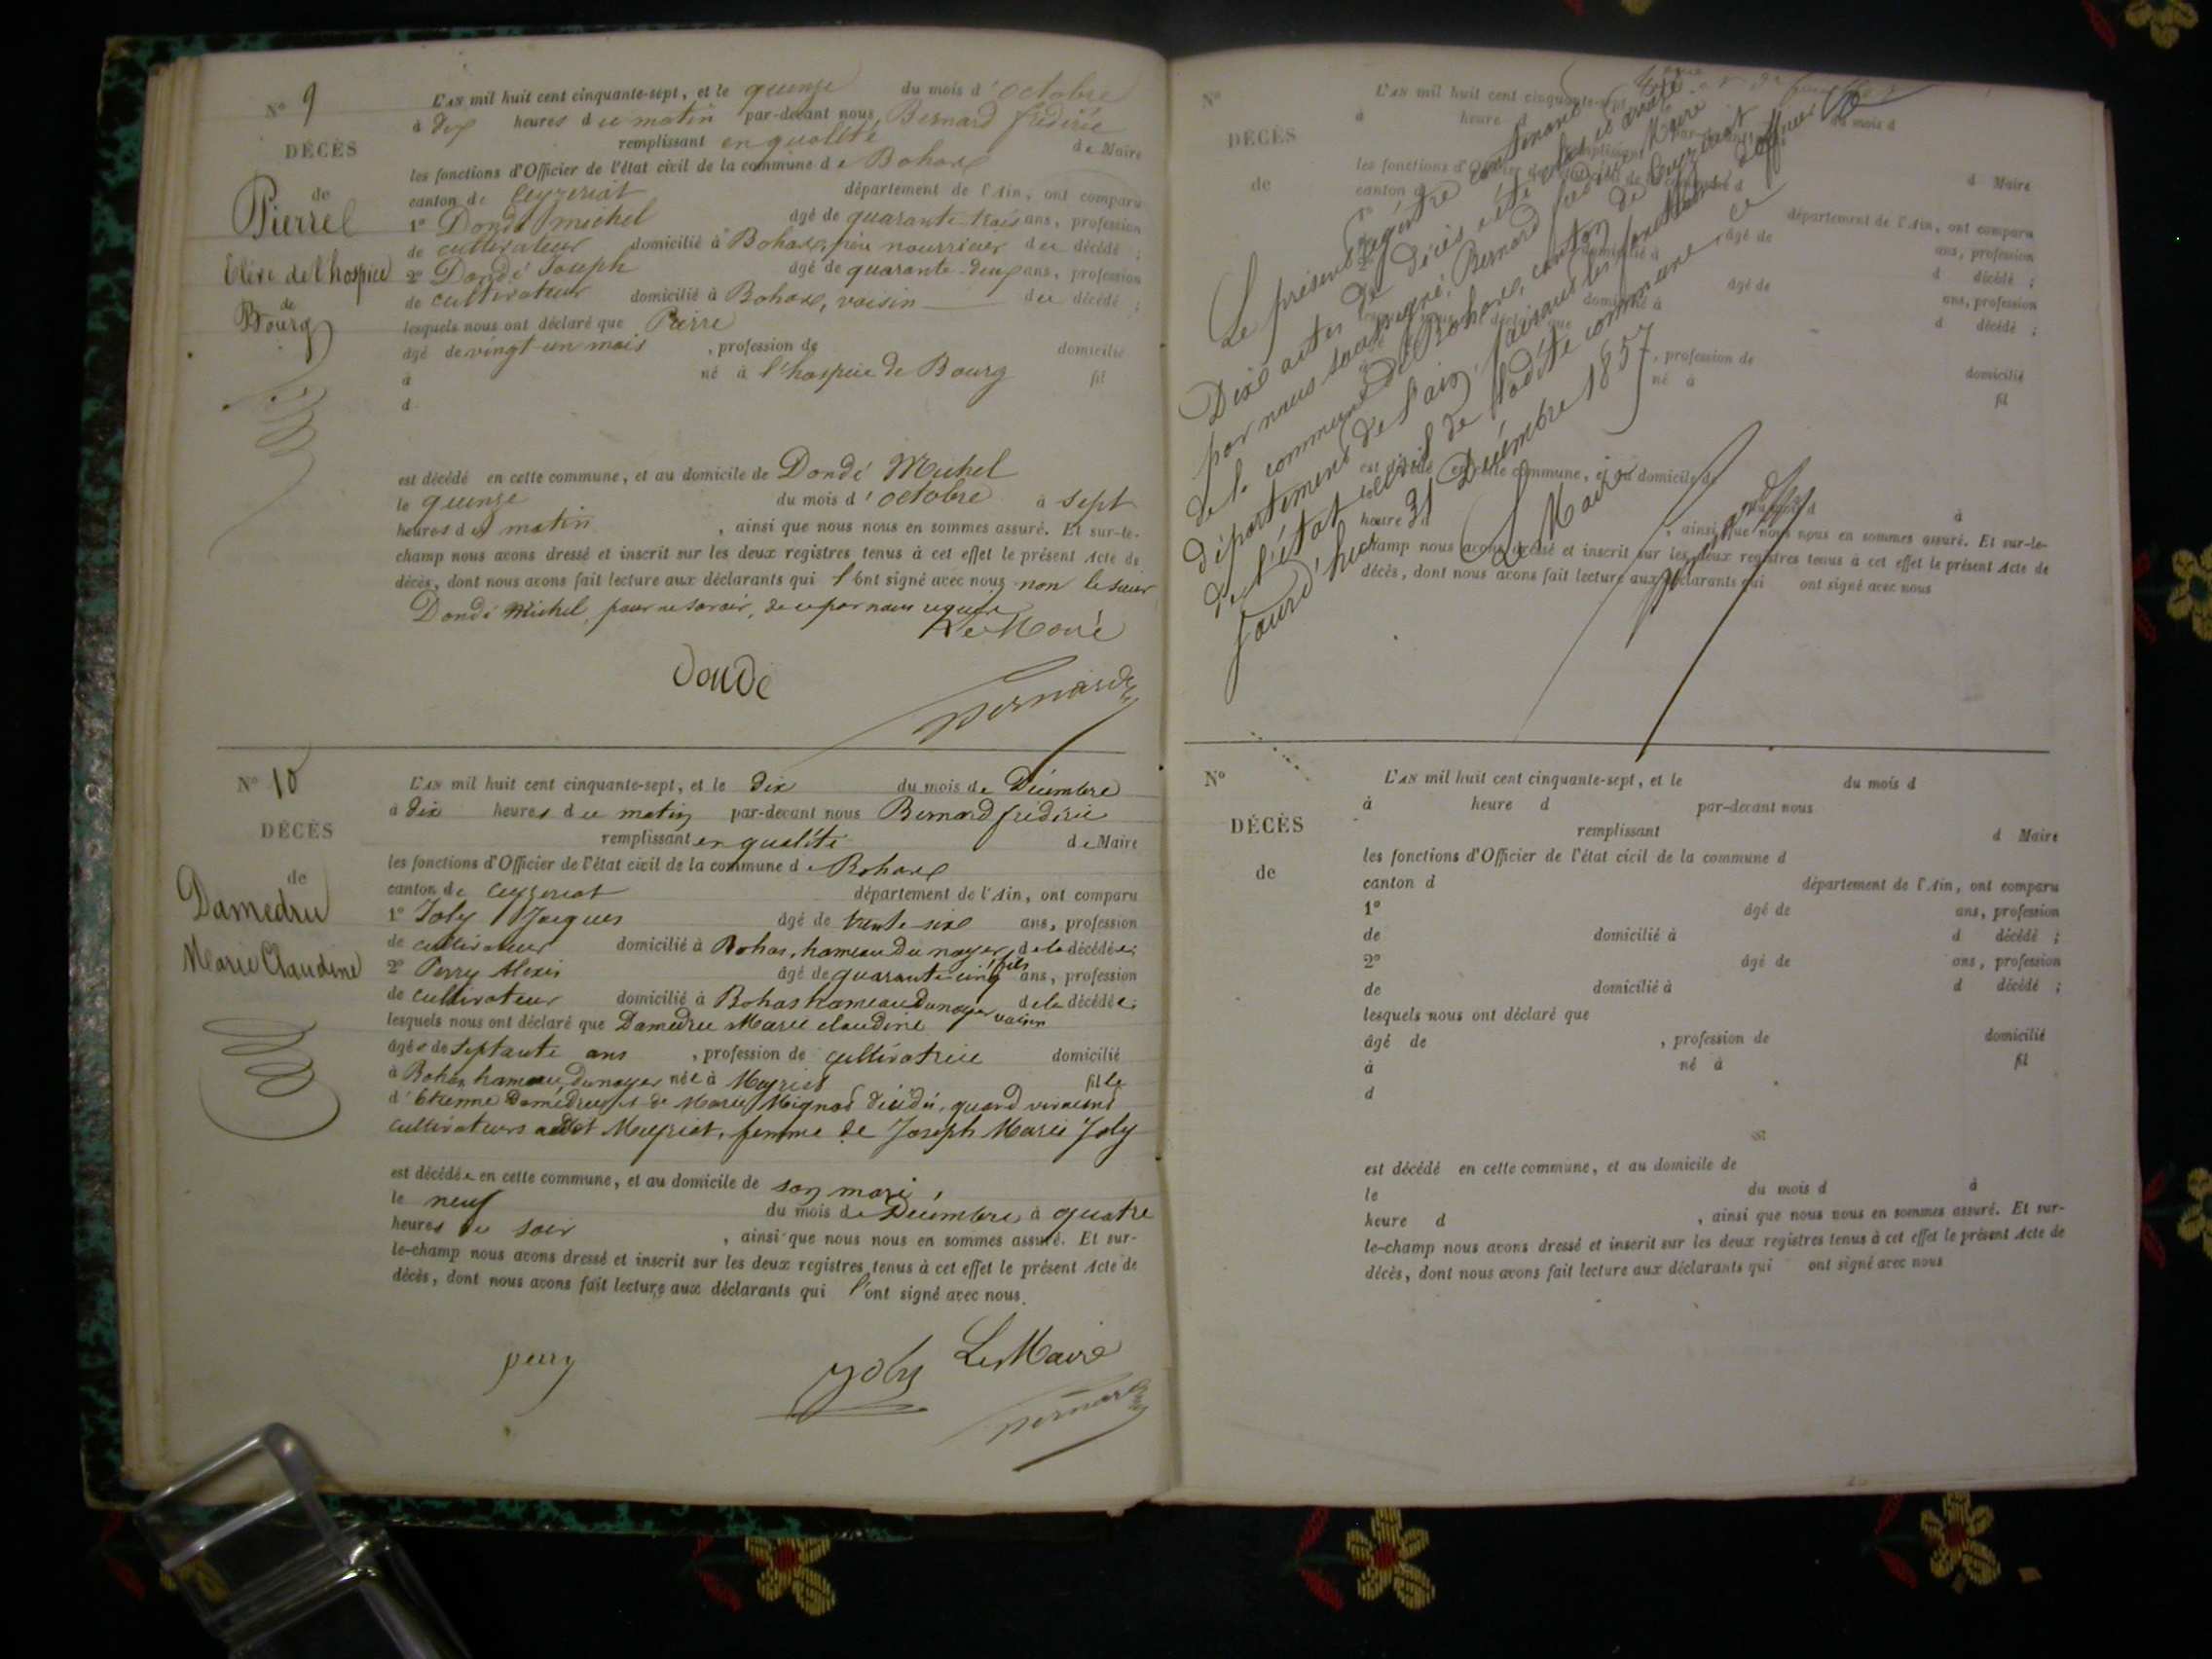 N° 9
DÉCÈS
de
Pierre
Elève de l'hospice
de
Bourg
L'AN mil huit cent cinquante-sept, et le quinze du mois d'octobre
à dix heures du matin par-devant nous Bernard frédéric
remplissant en qualité de Maire
les fonctions d'Officier de l'état civil de la commune de Bohas
canton de Ceyzeriat département de l'Ain, ont comparu
1° Dondé Michel âgé de quarante-trois ans, profession
de cultivateur domicilié à Bohas, père nourricier du décédé ;
2° Dondé Joseph âgé de quarante-deux ans, profession
de cultivateur domicilié à Bohas, voisin du décédé ;
lesquels nous ont déclaré que Pierre
âgé de vingt un mois , profession de domicilié
à né à l'hospice de Bourg fil
d
est décédé en cette commune, et au domicile de Dondé Michel
le quinze du mois d'octobre à sept
heures du matin , ainsi que nous nous en sommes assuré. Et sur-le-
champ nous avons dressé et inscrit sur les deux registres tenus à cet effet le présent Acte de
décès, dont nous avons fait lecture aux déclarants qui l'ont signé avec nous non le sieur
Dondé Michel, pour ne savoir, de ce par nous requis
Le Maire
Dondé
Bernard
N° 10
DÉCÈS
de
Damedru
Marie Claudine
L'AN mil huit cent cinquante-sept, et le dix du mois de Décembre
à dix heures du matin par-devant nous Bernard frédéric
remplissant en qualité de Maire
les fonctions d'Officier de l'état civil de la commune de Bohas
canton de Ceyzeriat département de l'Ain, ont comparu
1° Joly Jacques âgé de trente six ans, profession
de cultivateur domicilié à Bohas, hameau du noyer, fils de la décédée ;
2° Perry Alexis âgé de quarante-cinq ans, profession
de cultivateur domicilié à Bohas hameau du noyer voisin de la décédée ;
lesquels nous ont déclaré que Damedru Marie claudine
âgée de septante ans , profession de cultivatrice domicilié
à Bohas, hameau du noyer née à Meyriat fille
d'Etienne Damédru et de Marie Mignot décédés, quand vivaient
cultivateurs audit Meyriat, femme de Joseph Marie Joly
est décédée en cette commune, et au domicile de son mari,
le neuf du mois de Décembre à quatre
heures du soir , ainsi que nous nous en sommes assuré. Et sur-
le-champ nous avons dressé et inscrit sur les deux registres tenus à cet effet le présent Acte de
décès, dont nous avons fait lecture aux déclarants qui l'ont signé avec nous.
perry
joly Le Maire
Bernard
N°
DÉCÈS
de
L'AN mil huit cent cinquante-sept, et le du mois d
à heure d par-devant nous
remplissant d Maire
les fonctions d'Officier de l'état civil de la commune d
canton d département de l'Ain, ont comparu
âgé de ans, profession
domicilié à d décédé ;
âgé de ans, profession
domicilié à d décédé ;
, profession de domicilié
né à fil
est décédé en cette commune, et au domicile de
heure d , ainsi que nous nous en sommes assuré. Et sur-le-
champ nous avons dressé et inscrit sur les deux registres tenus à cet effet le présent Acte de
décès, dont nous avons fait lecture aux déclarants qui ont signé avec nous
Le présent régistre contenant
Dix actes de décès a été clos et arrêté
par nous soussigné, Bernard frédéric Maire
de la commune de Bohas, canton de Ceyzeriat
département de l'ain, faisant les fonctions d'officier
de l'état civil de ladite commune, ce
Jourd'hui 31 Décembre 1857
Le Maire
Bernard
N°
DÉCÈS
de
L'AN mil huit cent cinquante-sept, et le du mois d
à heure d par-devant nous
remplissant d Maire
les fonctions d'Officier de l'état civil de la commune d
canton d département de l'Ain, ont comparu
1° âgé de ans, profession
de domicilié à d décédé ;
2° âgé de ans, profession
de domicilié à d décédé ;
lesquels nous ont déclaré que
âgé de , profession de domicilié
à né à fil
d
est décédé en cette commune, et au domicile de
le du mois d à
heure d , ainsi que nous nous en sommes assuré. Et sur-
le-champ nous avons dressé et inscrit sur les deux registres tenus à cet effet le présent Acte de
décès, dont nous avons fait lecture aux déclarants qui ont signé avec nous